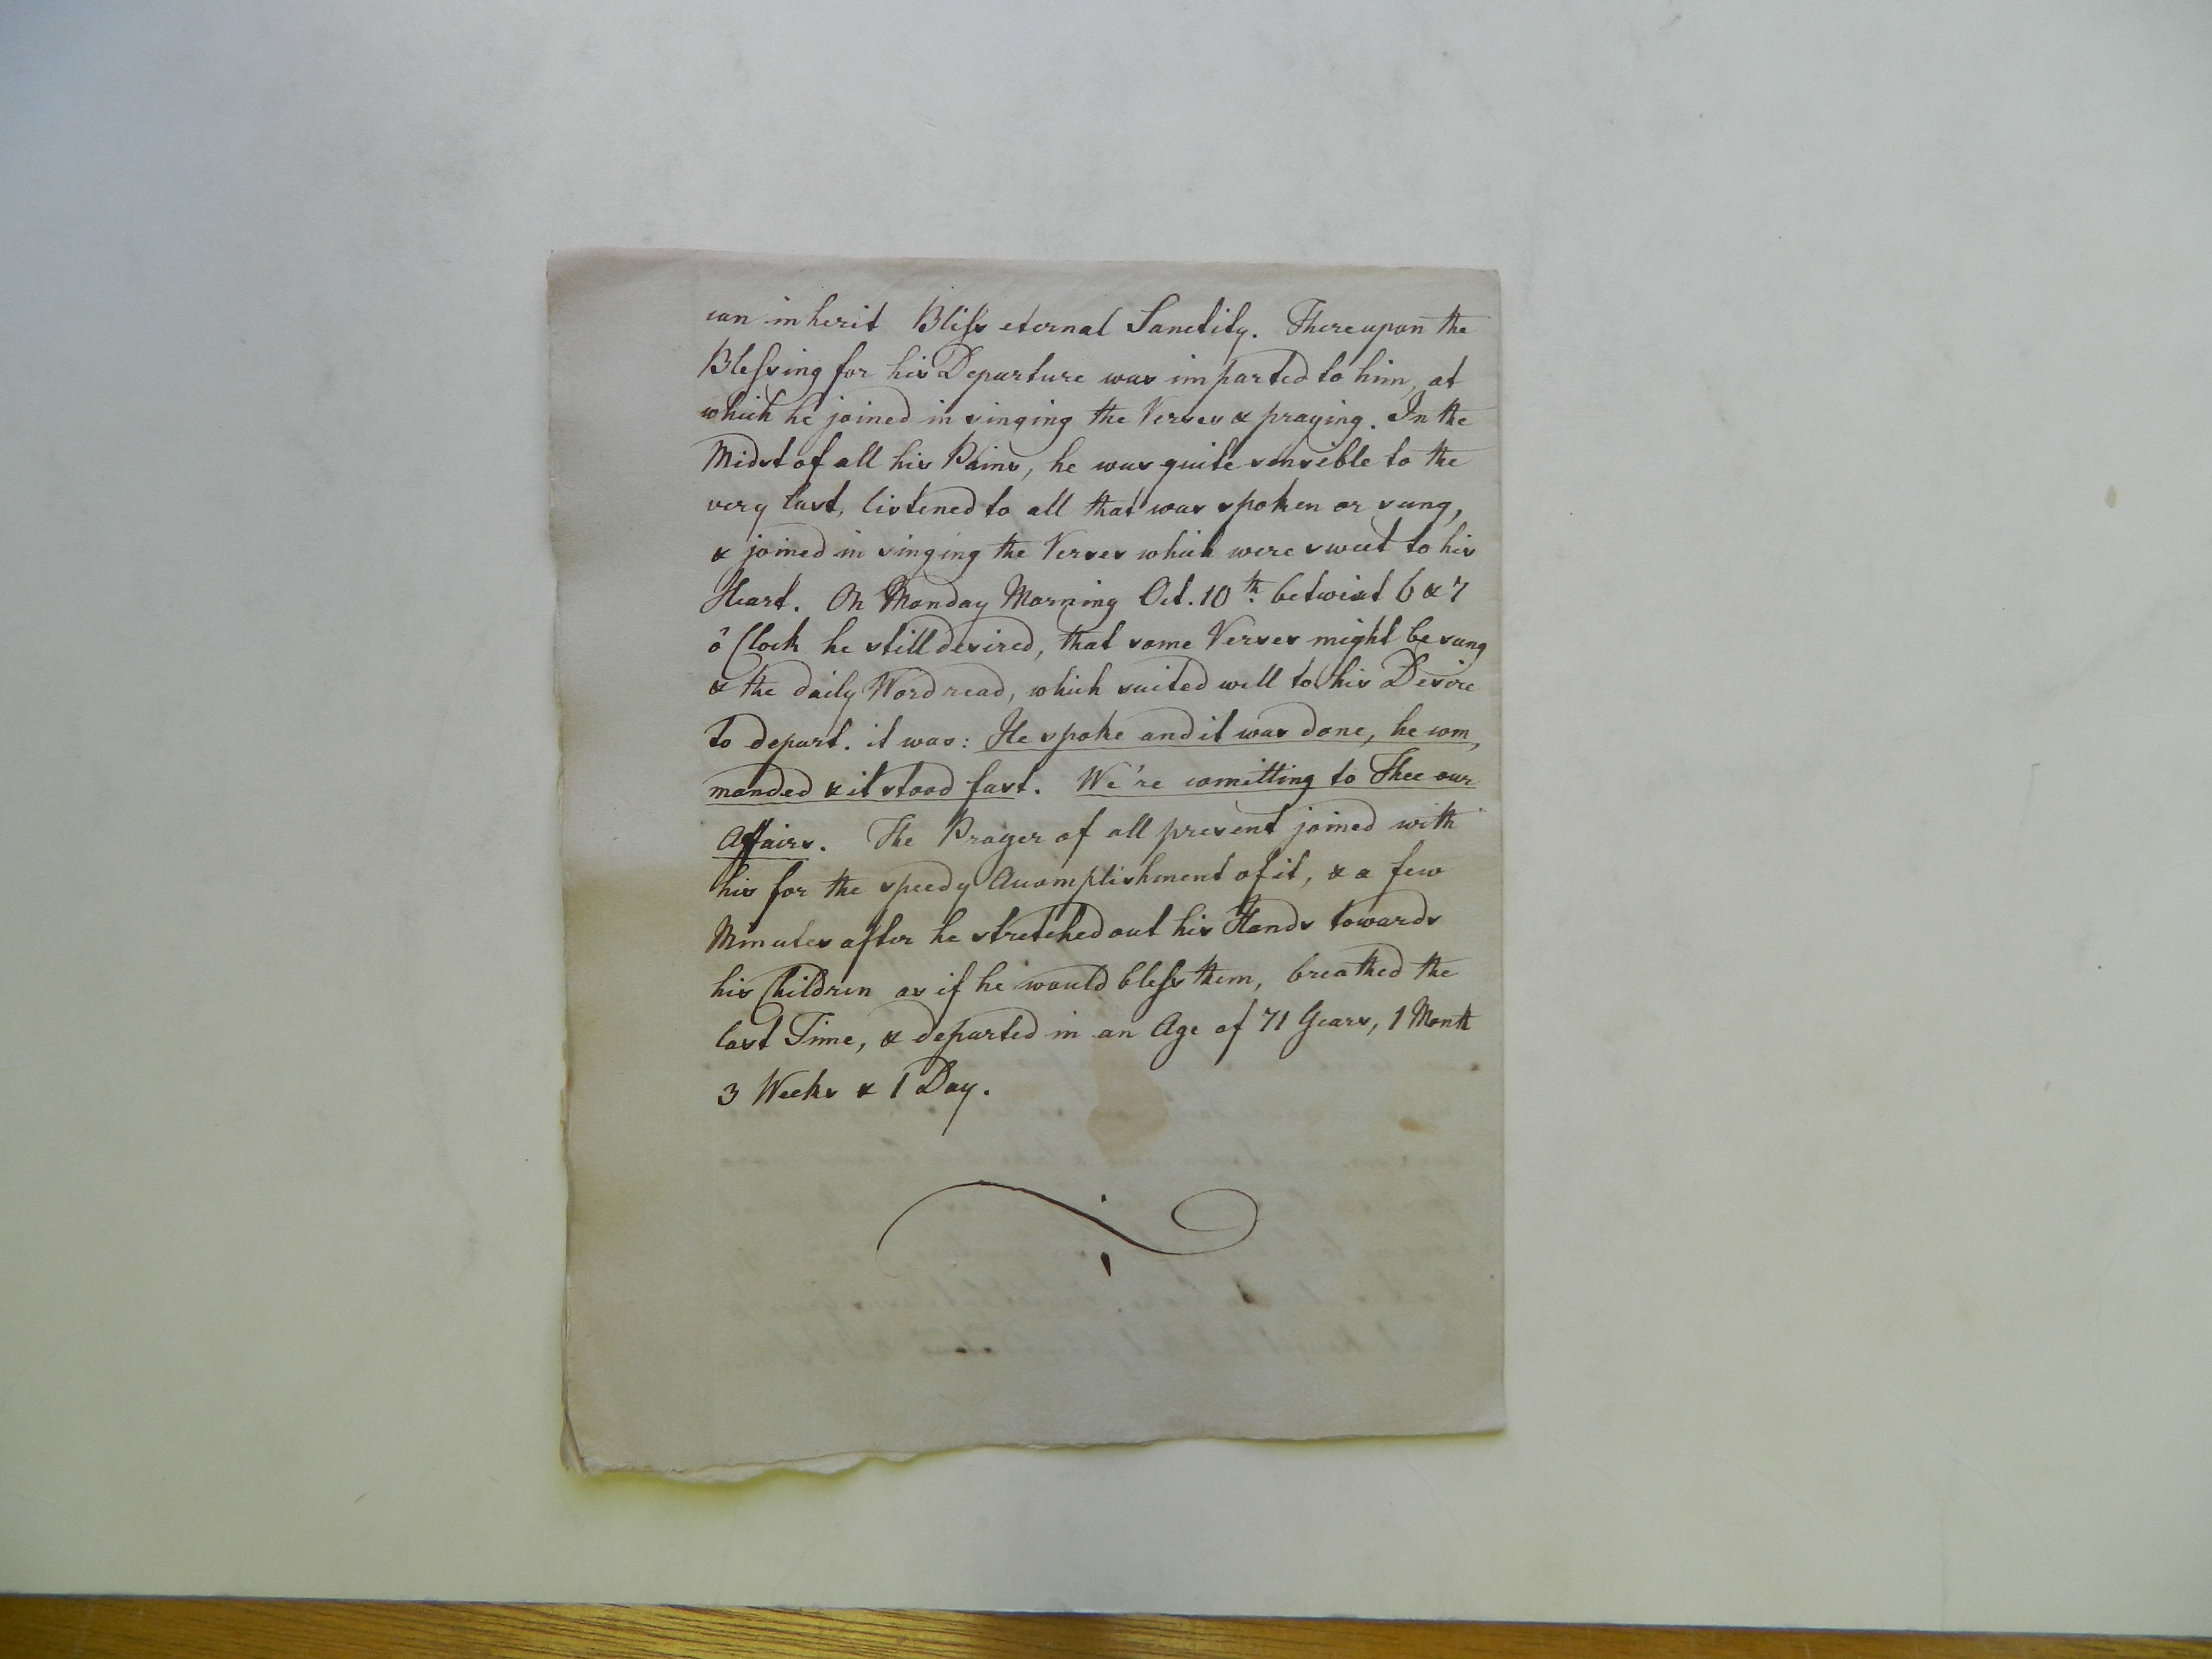 can inherit Bliss eternal Sanctity. Thereupon the
Blessing for his Departure was imparted to him, at
which he joined in singing the Verses & praying. In the
Midst of all his Pains, he was quite sensible to the
very last, listened to all that was spoken or sung,
& joined in singing the Verses which were sweet to his
Heart. On Monday Morning Oct. 10th. betwixt 6 & 7
o'Clock he still desired, that some Verses might be sung
& the daily Word read, which suited well to his Desire
to depart. it was: He spoke and it was done, he com,
manded & it stood fast. We're comitting to Thee our
Affairs. The Prayer of all present joined with
his for the speedy Accomplishment of it, & a few
Minutes after he stretched out his Hands towards
his Children as if he would bless them, breathed the
last Time, & departed in an Age of 71 Years, 1 Month
3 Weeks & 1 Day.